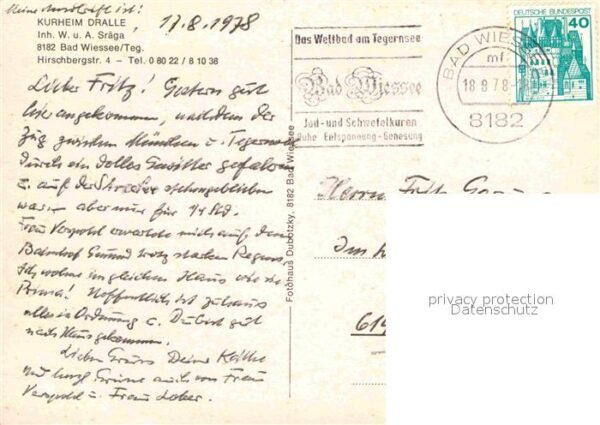 Meine Anschrift ist:
KURHEIM DRALLE, 17.8.1978
Inh. W. u. A. Sräga
8182 Bad Wiessee/Teg.
Hirschbergstr. 4 – Tel. 0 80 22 / 8 10 38
Lieber Fritz! Gestern gut
hier angekommen, nachdem der
Zug zwischen München u. Tegernsee
durch ein tolles Gewitter gefahren
u. auf der Strecke stehengeblieben
war – aber nur für 1/4 Std.
Frau Verpold erwartete mich auf dem
Bahnhof Gmund trotz starken Regens.
Ich wohne im gleichen Haus wie sie
Prima! Hoffentlich ist zuhaus
alles in Ordnung u. Du bist gut
nach Haus gekommen.
Lieben Gruss Deine Käthe
und herzl. Grüsse auch von Frau
Verpold u. Frau Lober.
Fotohaus Dubotzky, 8182 Bad Wiessee
Das Weltbad am Tegernsee
Bad Wiessee
Jod- und Schwefelkuren
Ruhe Entspannung Genesung
BAD WIESSEE
mf
18.8.78
8182
DEUTSCHE BUNDESPOST
40
Herrn Fritz
Im
61
privacy protection
Datenschutz